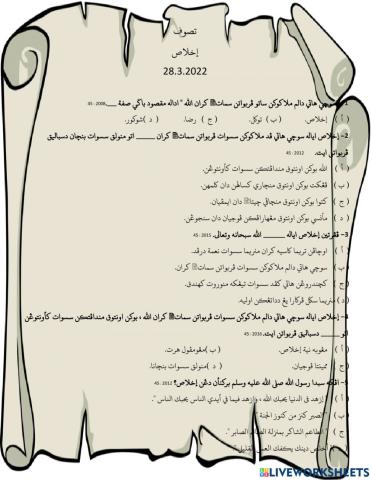 تصوف
إخلاص
28.3.2022
1- سوچي هاتي دالم ملاكوكن ساتو ڤربواتن سمات٢ كران الله " اداله مقصود باڬي صفة ___. 2008- 45
( أ ) إخلاص. ( ب ) توكل. ( ج ) رضا. ( د )شوكور.
2- إخلاص اياله سوچي هاتي ڤد ملاكوكن سسوات ڤربواتن سمات٢ كران ______ اتو منولق سسوات بنچان دسباليق
ڤربواتن ايت. 2012 - 45
( أ ) الله بوكن اونتوق منداڤتكن سسوات كأونتوڠن.
( ب ) بوكن اونتوق منچاري كسالهن دان كلمهن.
( ج ) كتوا بوكن اونتوق منچاڤي چيتا٢ دان ايمڤيان.
( د ) مأنسي بوكن اونتوق مڠهارڤكن ڤوجيان دان سنجوڠن.
3- إخلاص اياله ______ الله سبحانه وتعالى. 2015 - 45
( أ ) اوچاڤن تريما كاسيه كران منريما سسوات نعمة درڤد.
( ب ) سوچي هاتي دالم ملاكوكن سسوات ڤربواتن سمات٢ كران.
( ج ) هاتي كڤد سسوات تيڠكه منوروت كهندق.
( د ) منريما سڬل ڤركارا يڠ اوليه.
4- إخلاص اياله سوچي هاتي دالم ملاكوكن سسوات ڤربواتن سمات٢ كران الله ، بوكن اونتوق منداڤتكن سسوات كأونتوڠن
اتو ______ دسباليق ڤربواتن ايت. 2016 - 45
( أ ) نية إخلاص. ( ب )
( ج ) ڤوجيان. ( د ) منولق سسوات بنچانا.
5- سبدا رسول الله صلى الله عليه وسلم بركنأن دڠن إخلاص؟ 2012 - 45
( أ ) " ازهد في الدنيا يحبك الله ، وازهد فيما في أيدي الناس يحبك الناس ".
( ب ) " الصبر كنز من كنوز الجنة "
( ج ) " الطاعم الشاكر بمنزلة الصائم الصابر ".
( د ) " أخلص دينك يكفك العمل القليل "
LIVEWORKSHEETS